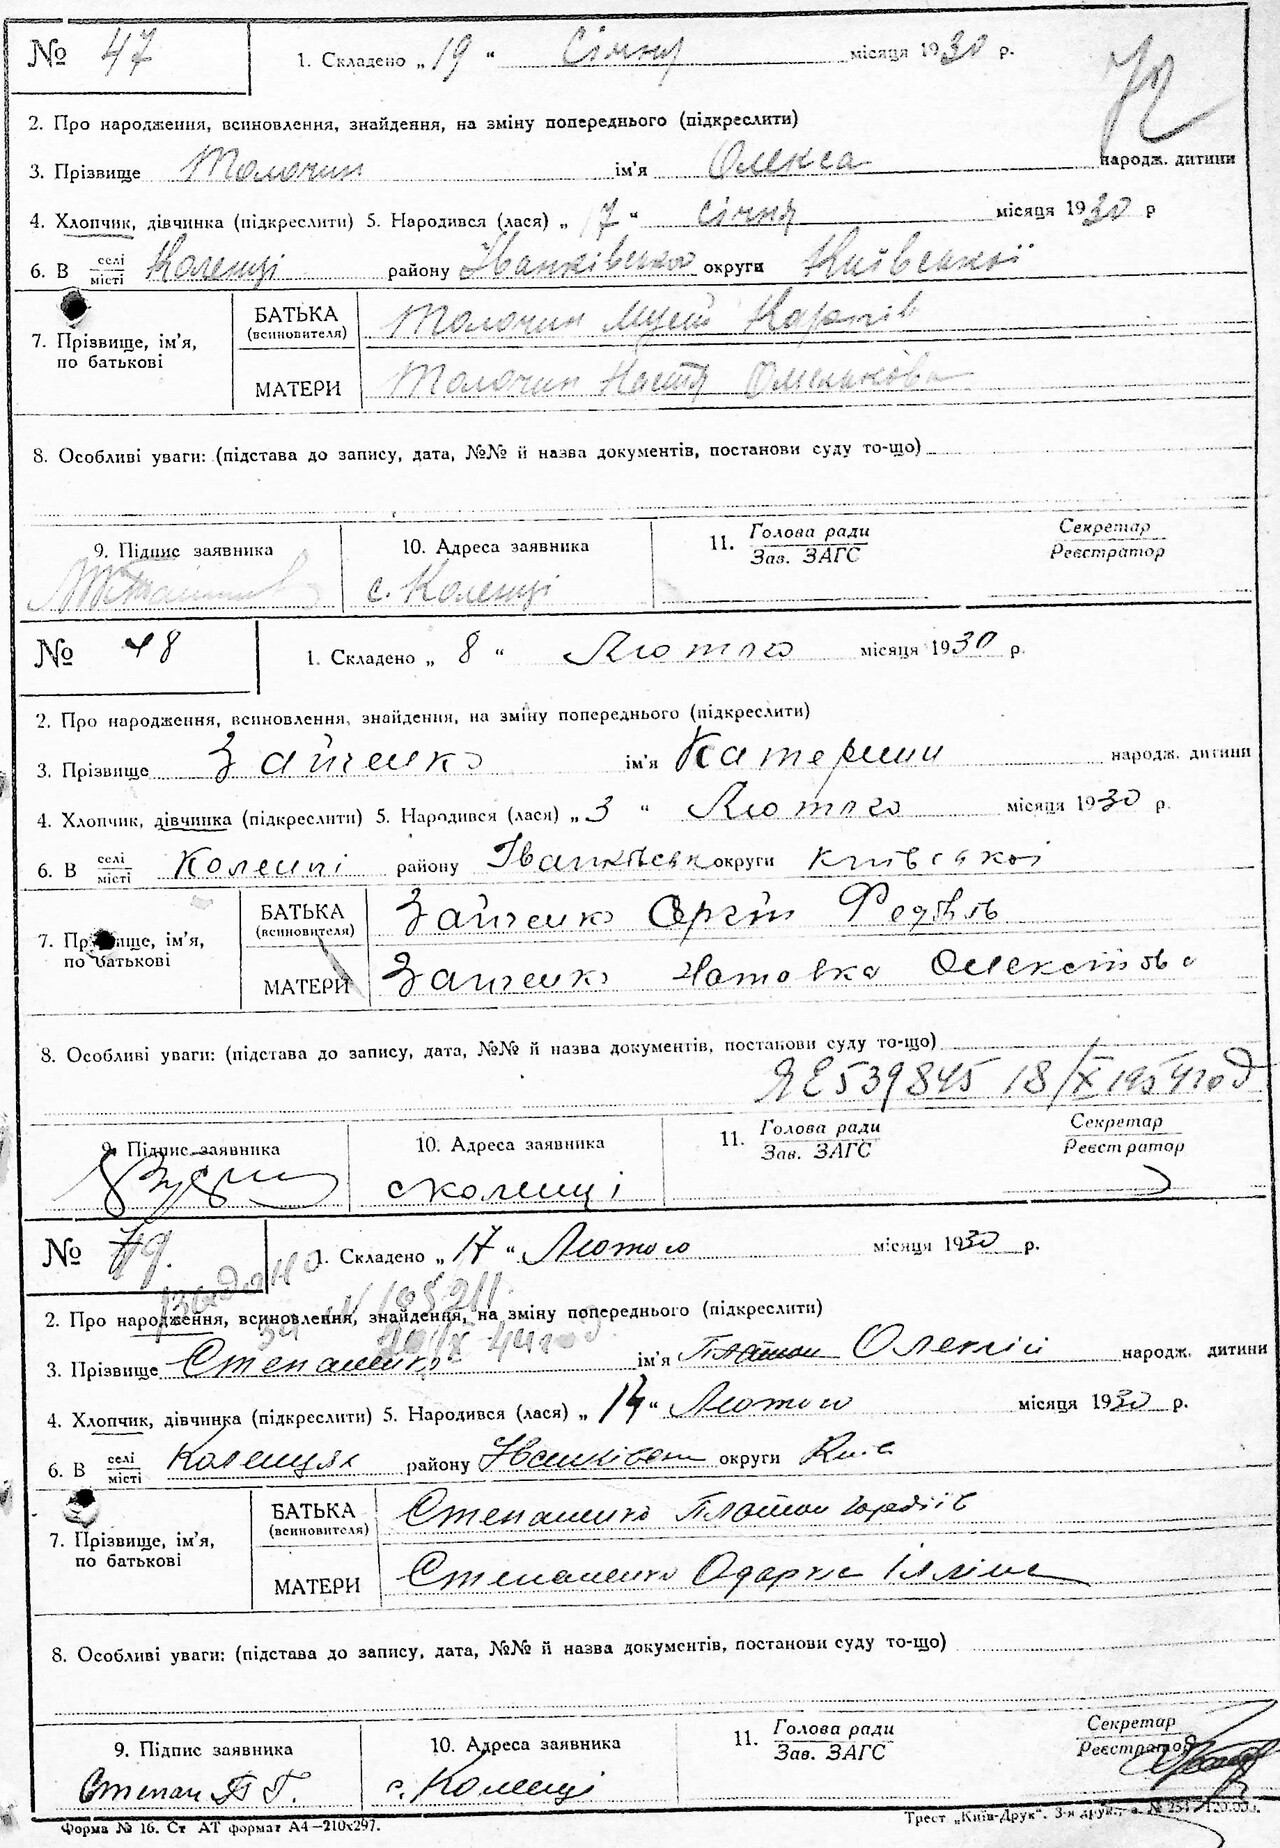 № 47 1. Складено „ 19 “ Січня місяця 1930 р.
2. Про народження, всиновлення, знайдення, на зміну попереднього (підкреслити)
3. Прізвище Толочин ім'я Олекса народж. дитини
4. Хлопчик, дівчинка (підкреслити) 5. Народився (лася) „ 17 “ Січня місяця 1930 р
6. В селі/місті Коленці району Іванківського округи Київської
7. Прізвище, ім'я, по батькові
БАТЬКА (всиновителя) Толочин Мусій Карпів
МАТЕРИ Толочин Настя Омелькова
8. Особливі уваги: (підстава до запису, дата, №№ й назва документів, постанови суду то-що)
9. Підпис заявника 10. Адреса заявника 11. Голова ради Секретар
Зав. ЗАГС Реєстратор
с. Коленці
№ 48 1. Складено „ 8 “ Лютого місяця 1930 р.
2. Про народження, всиновлення, знайдення, на зміну попереднього (підкреслити)
3. Прізвище Зайченко ім'я Катерини народж. дитини
4. Хлопчик, дівчинка (підкреслити) 5. Народився (лася) „ 3 “ Лютого місяця 1930 р.
6. В селі/місті Коленці району Іванківськ округи Київської
7. Прізвище, ім'я, по батькові
БАТЬКА (всиновителя) Зайченко Сергій
МАТЕРИ Зайченко
8. Особливі уваги: (підстава до запису, дата, №№ й назва документів, постанови суду то-що)
ЯЕ 539845 18/X 1954 год
9. Підпис заявника 10. Адреса заявника 11. Голова ради Секретар
Зав. ЗАГС Реєстратор
с Коленці
№ 49. 1. Складено „ 17 “ Лютого місяця 1930 р.
2. Про народження, всиновлення, знайдення, на зміну попереднього (підкреслити)
3. Прізвище Степаненко ім'я Платон Олексій народж. дитини
4. Хлопчик, дівчинка (підкреслити) 5. Народився (лася) „ 14 “ Лютого місяця 1930 р.
6. В селі/місті Коленцях району округи Київ
7. Прізвище, ім'я, по батькові
БАТЬКА (всиновителя) Степаненко Платон
МАТЕРИ Степаненко Одарка
8. Особливі уваги: (підстава до запису, дата, №№ й назва документів, постанови суду то-що)
9. Підпис заявника 10. Адреса заявника 11. Голова ради Секретар
Зав. ЗАГС Реєстратор
Степан П Г. с. Коленці
Форма № 16. Ст АТ формат А4—210х297. Трест „Київ-Друк“. 3-я друк.